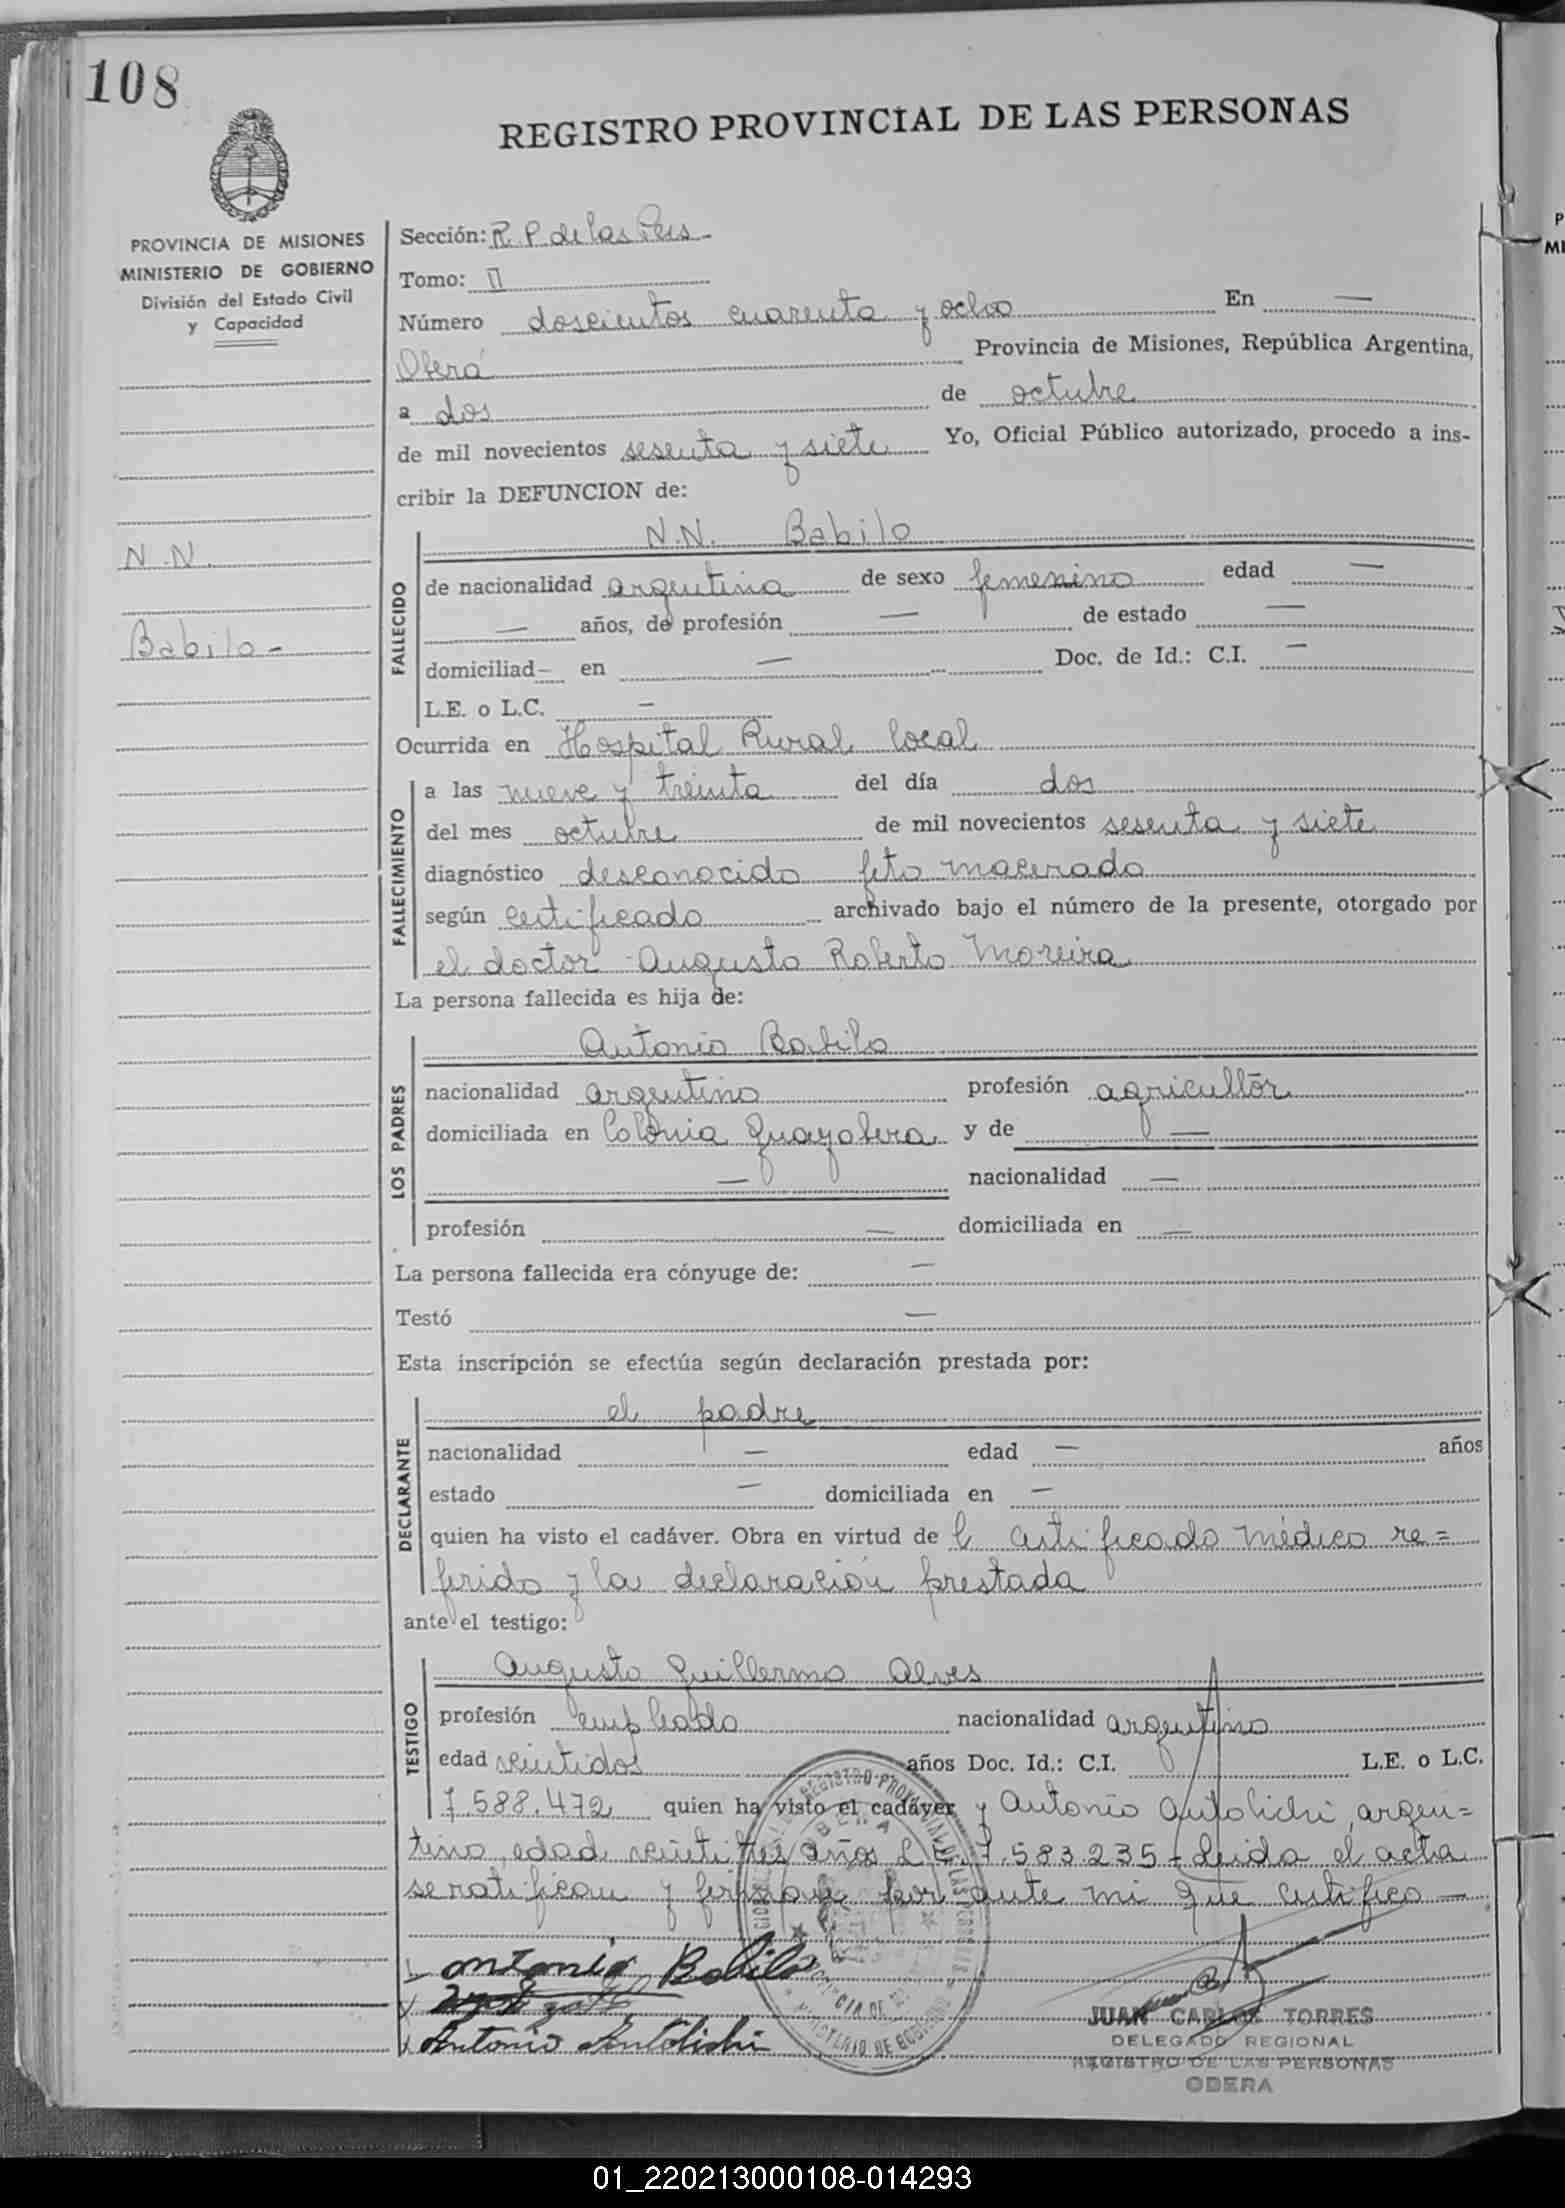 108
REGISTRO PROVINCIAL DE LAS PERSONAS
PROVINCIA DE MISIONES
MINISTERIO DE GOBIERNO
División del Estado Civil
y Capacidad
N.N.
Babilo -
Sección: R. P. de las Pers -
Tomo: II
Número doscientos cuarenta y ocho En —
Oberá Provincia de Misiones, República Argentina,
a dos de octubre
de mil novecientos sesenta y siete Yo, Oficial Público autorizado, procedo a ins-
cribir la DEFUNCION de:
N.N. Babilo
FALLECIDO
de nacionalidad argentina de sexo femenino edad —
— años, de profesión — de estado —
domiciliad— en — Doc. de Id.: C.I. —
L.E. o L.C. —
Ocurrida en Hospital Rural local
FALLECIMIENTO
a las nueve y treinta del día dos
del mes octubre de mil novecientos sesenta y siete
diagnóstico desconocido feto macerado
según certificado archivado bajo el número de la presente, otorgado por
el doctor Augusto Roberto Moreira
La persona fallecida es hija de:
Antonio Babilo
LOS PADRES
nacionalidad argentino profesión agricultor
domiciliada en Colonia Guayabera y de —
— nacionalidad —
profesión — domiciliada en —
La persona fallecida era cónyuge de: —
Testó —
Esta inscripción se efectúa según declaración prestada por:
el padre
DECLARANTE
nacionalidad — edad — años
estado — domiciliada en —
quien ha visto el cadáver. Obra en virtud de l certificado médico re=
ferido y la declaración prestada
ante el testigo:
Augusto Guillermo Alves
TESTIGO
profesión empleado nacionalidad argentino
edad veintidos años Doc. Id.: C.I. L.E. o L.C.
7.588.472 quien ha visto el cadáver y Antonio Autolichi, argen=
tino, edad veintitres años L.E. 7.583.235 - Leida el acta
se ratifican y firman por ante mi que certifico —
Antonio Babilo
Antonio Autolichi
REGISTRO PROVINCIAL DE LAS PERSONAS
OBERA
MINISTERIO DE GOBIERNO
JUAN CARLOS TORRES
DELEGADO REGIONAL
REGISTRO DE LAS PERSONAS
OBERA
01_220213000108-014293